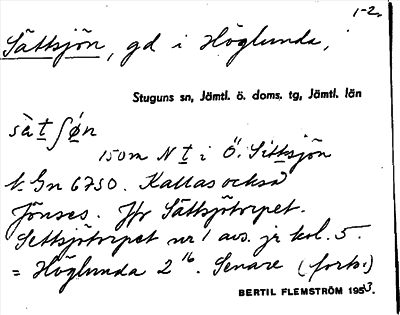 1-2.
Sättsjön, gd i Höglunda,
Stuguns sn, Jämtl. ö. doms. tg, Jämtl. län
sàt ʃǿn
150 m N t i Ö. Sittsjön
t. Gn 6750. Kallas också
Jönses. Jfr Sättsjötorpet.
Settsjötorpet nr 1 avs. jr kol. 5.
= Höglunda 2 16. Senare (forts.)
BERTIL FLEMSTRÖM 1953.